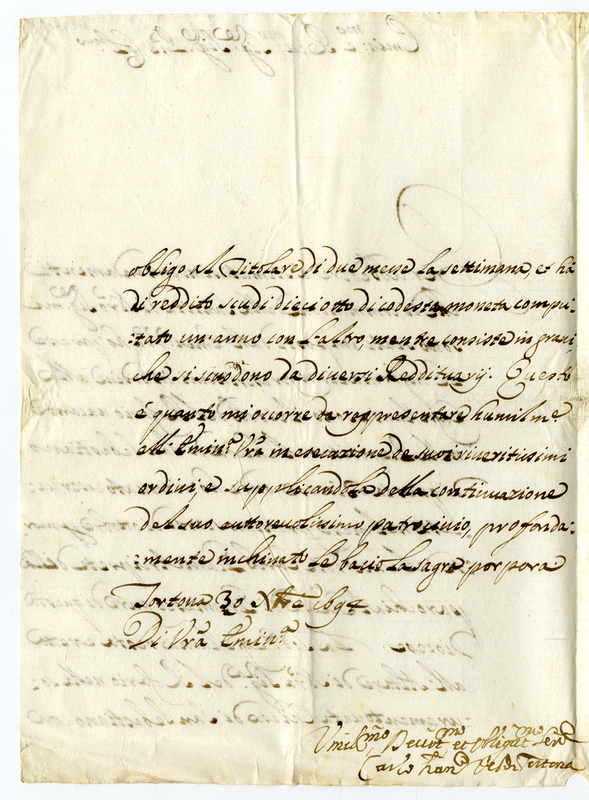 obligo al Titolare di due messe la settimana, et há
di reddito scudi dieciotto di codesta moneta compu:
:tato un'anno con l'altro, mentre consiste in grani,
che si scuodono da diversi Reddituarij. Questo
è quanto mi occorre de rappresentare humilm.e
all'Emin.a Vrã in esecuzione de suoi riveritissimi
ordini, e supplicandola della continuazione
del suo auttorevolissimo patrocinio, profonda:
:mente inchinato le bacio la sagra porpora
Tortona 30 Nbre 1694
Di Vrã Emin.a
Umil.mo Devot.mo et Obligat.mo Ser.e
Carlo Fran.o Ves.o di Tortona